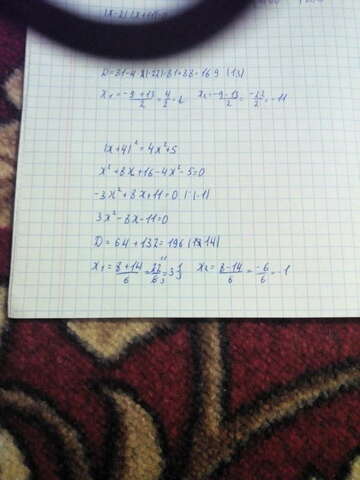 D=81-4·(-22)=81+88=169 (13)
x₁=(-9+13)/2=4/2=2   x₂=(-9-13)/2=-22/2=-11
(x+4)²=4x²+5
x²+8x+16-4x²-5=0
-3x²+8x+11=0 |·(-1)
3x²-8x-11=0
D=64+132=196 (14)
x₁=(8+14)/6=22/6=   x₂=(8-14)/6=-6/6=-1